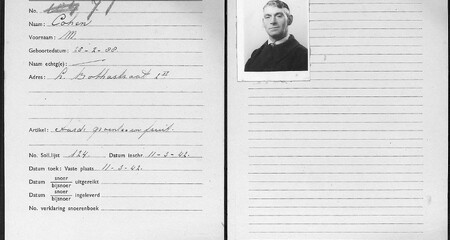 No.
Naam: Cohen
Voornaam: M.
Geboortedatum: 28-2-98
Naam echtg(e):
Adres: L. Bothastraat
Artikel: Aard. groenten en fruit.
No. Soll.lijst 124. Datum inschr. 11-3-42.
Datum toek: Vaste plaats 11-3-42.
Datum snoer / bijsnoer uitgereikt
Datum snoer / bijsnoer ingeleverd
No. verklaring snoerenboek